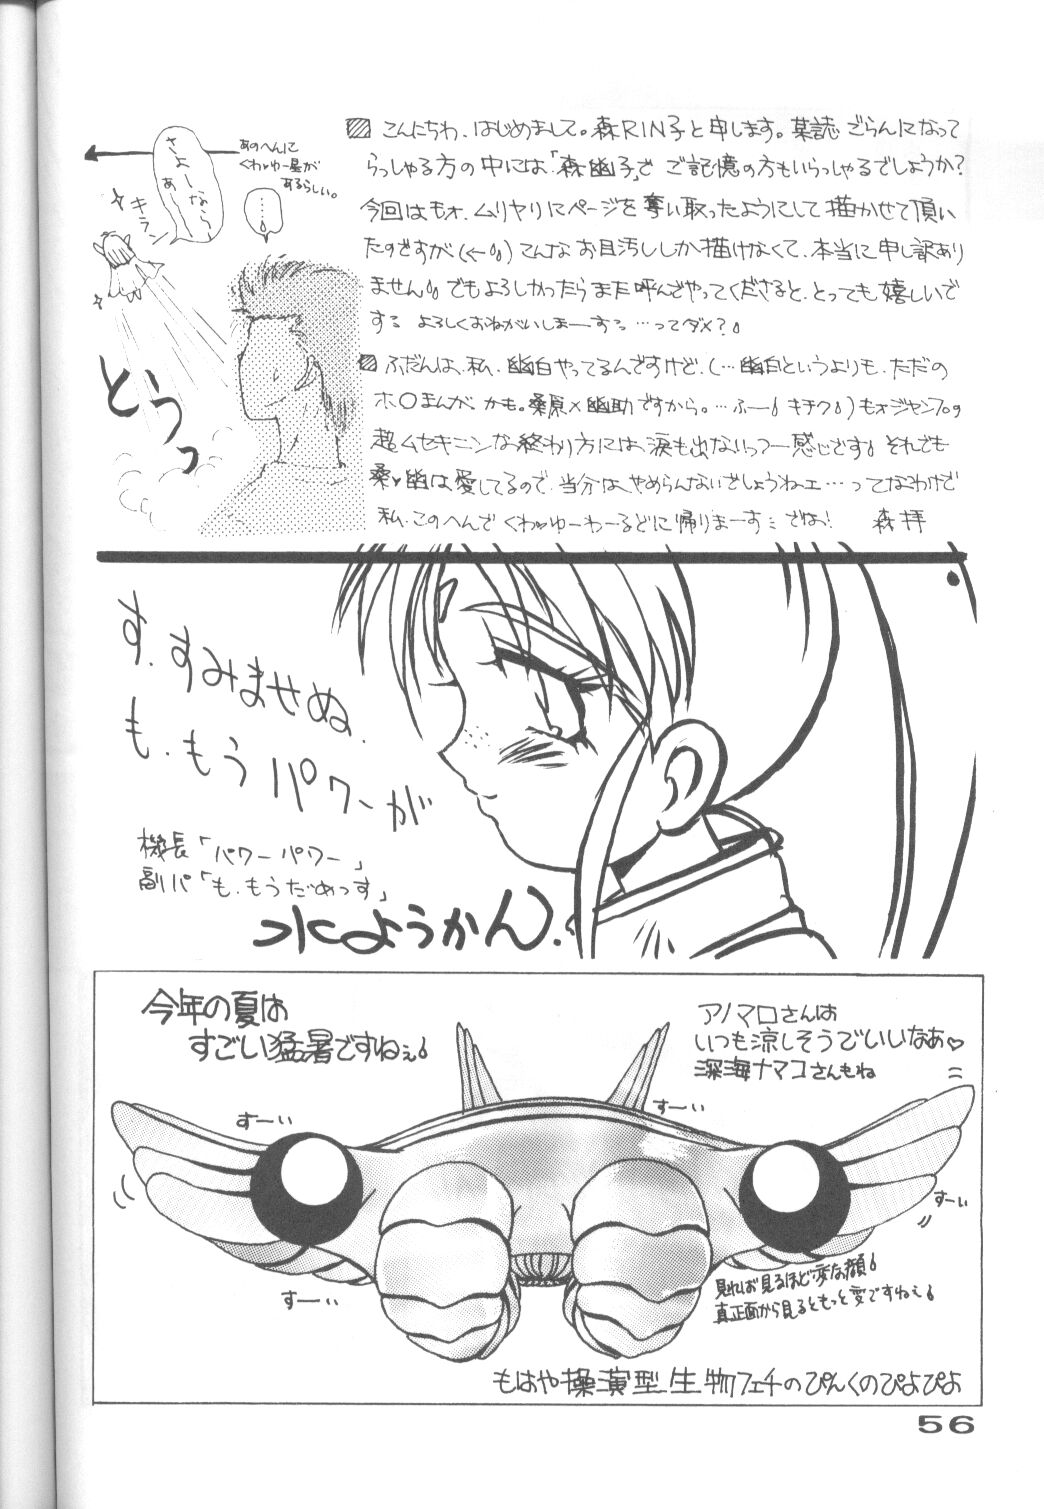 こんにちわ、はじめまして。森RIN子と申します。某誌ごらんになって
らっしゃる方の中には、「森幽子」でご記憶の方もいらっしゃるでしょうか?
今回はもォ、ムリヤリにページを奪い取ったようにして描かせて頂い
たのですが(←)こんなお目汚ししか描けなくて、本当に申し訳あり
ません。でもよろしかったらまた呼んでやってくださると、とっても嬉しいで
する よろしくおねがいしまーする …ってダメ?
ふだんは、私、幽白やってるんですけど、(…幽白というよりも、ただの
ホ○まんが。かも。桑原×幽助ですから。…ふー キチク)もォジャンプの
超ムセキニンな終わり方には、涙も出ないっつー感じです それでも
桑♥幽は愛してるので、当分は、やめらんないでしょうねェ…ってなわけで
私、このへんで くわゆーわーるどに帰りまーす では! 森拝
さよーなら
あ〜
あのへんに
くわゆー星が
あるらしい。
……
キラン
とうっ
す、すみませぬ、
も、もうパワーが
機長「パワーパワー」
副パ「も、もうだめっす」
水ようかん
今年の夏は
すごい猛暑ですねぇ
アノマロさんは
いつも涼しそうでいいなあ♡
深海ナマコさんもね
すーい
すーい
すーい
すーい
見れば見るほど変な顔
真正面から見るともっと変ですねぇ
もはや操演型生物フェチのぴんくのぴよぴよ
56